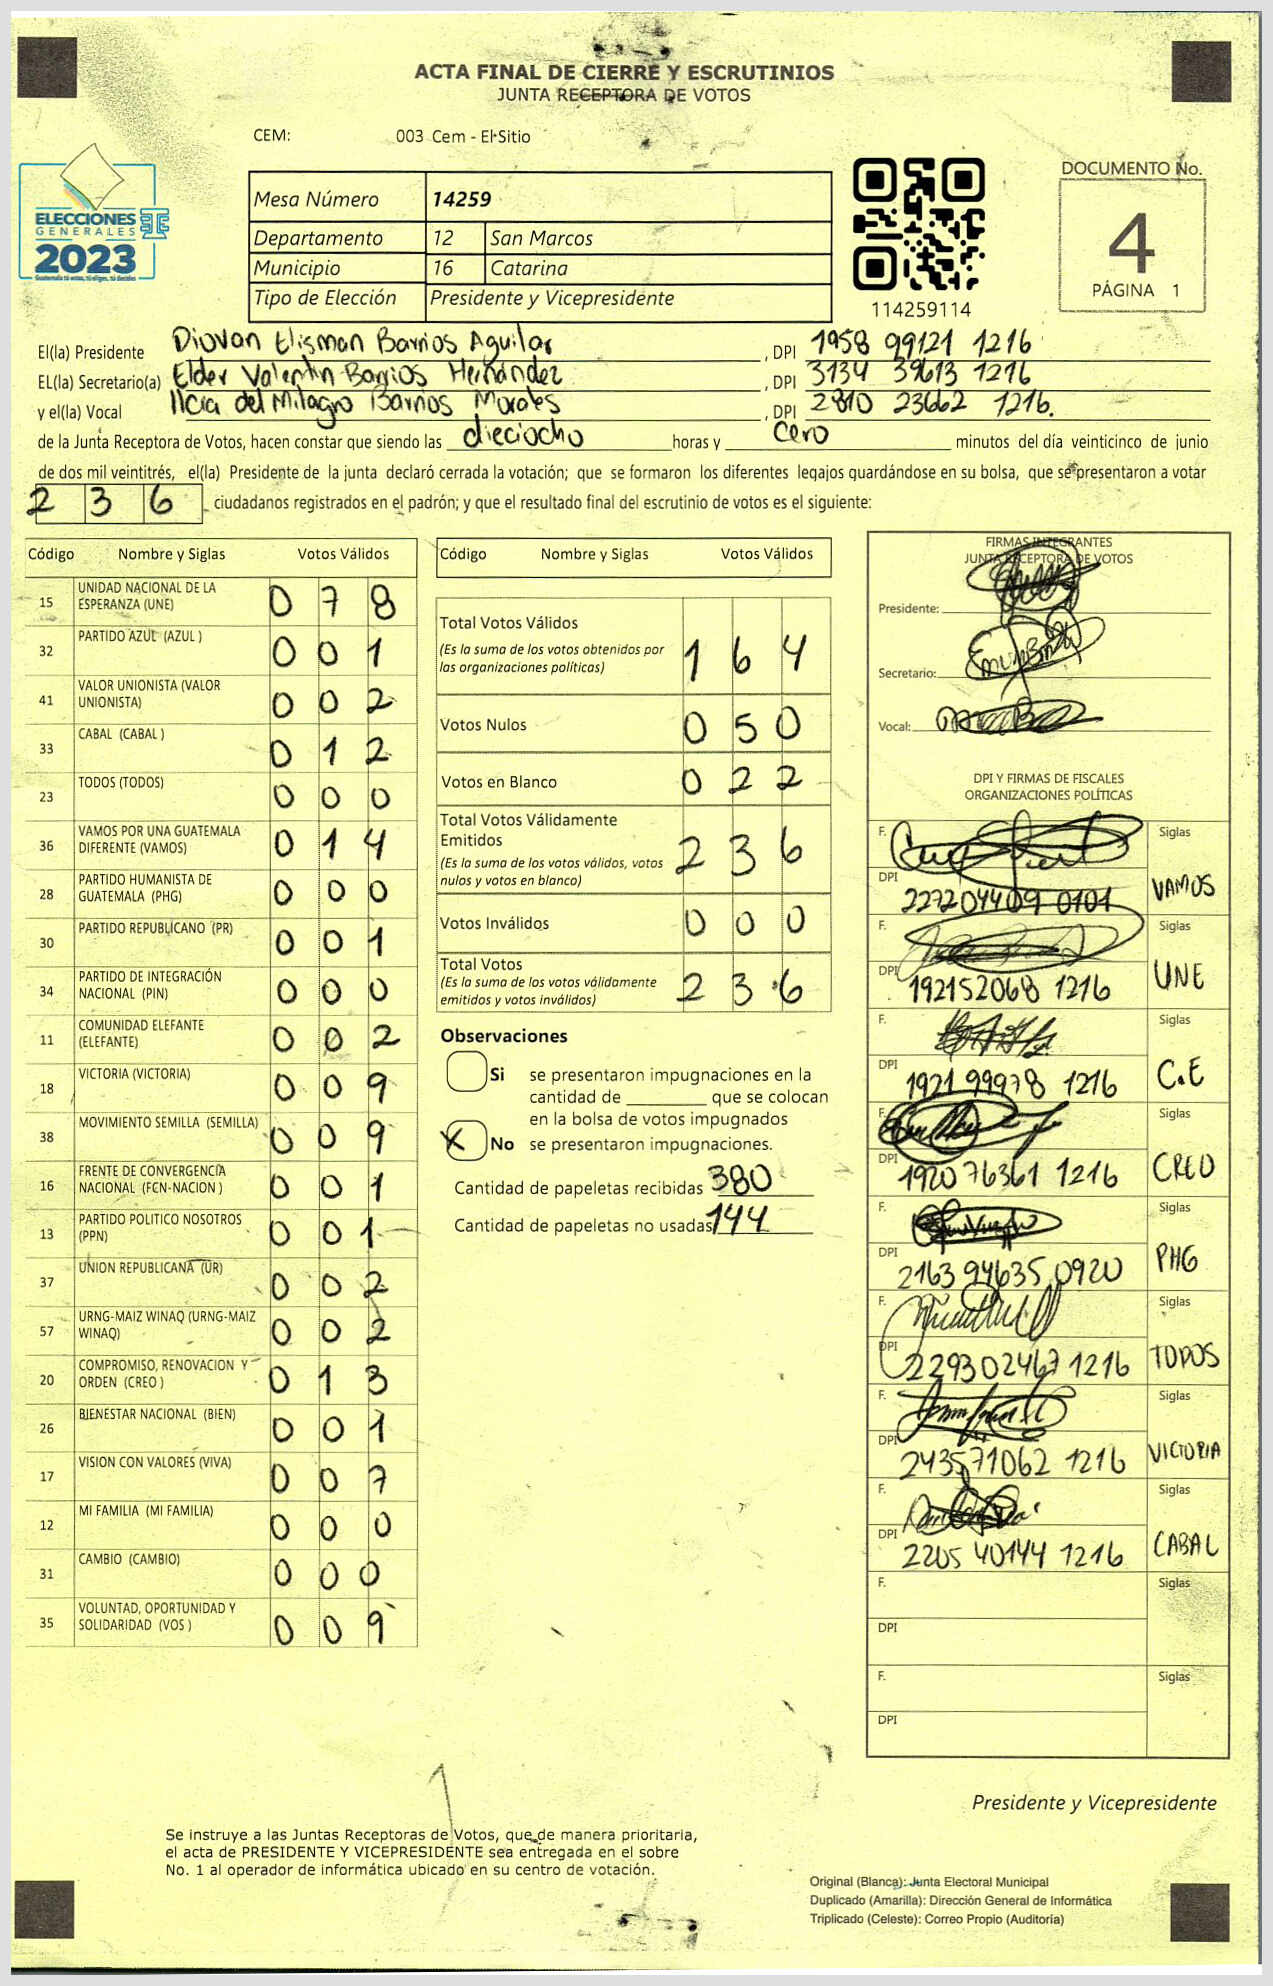 ACTA FINAL DE CIERRE Y ESCRUTINIOS
JUNTA RECEPTORA DE VOTOS
CEM: 003 Cem - El Sitio
ELECCIONES
GENERALES
2023
Mesa Número 14259
Departamento 12 San Marcos
Municipio 16 Catarina
Tipo de Elección Presidente y Vicepresidente
114259114
DOCUMENTO No.
4
PÁGINA 1
El(la) Presidente Diovan Elisman Barrios Aguilar, DPI 1958 99121 1216
EL(la) Secretario(a) Elder Valentin Barrios Hernández, DPI 3134 39613 1216
y el(la) Vocal Ilcia del Milagro Barrios Morales, DPI 2810 23662 1216.
de la Junta Receptora de Votos, hacen constar que siendo las dieciocho horas y cero minutos del día veinticinco de junio
de dos mil veintitrés, el(la) Presidente de la junta declaró cerrada la votación; que se formaron los diferentes legajos guardándose en su bolsa, que se presentaron a votar
236 ciudadanos registrados en el padrón; y que el resultado final del escrutinio de votos es el siguiente:
Código Nombre y Siglas Votos Válidos
15 UNIDAD NACIONAL DE LA ESPERANZA (UNE) 0 7 8
32 PARTIDO AZUL (AZUL ) 0 0 1
41 VALOR UNIONISTA (VALOR UNIONISTA) 0 0 2
33 CABAL (CABAL ) 0 1 2
23 TODOS (TODOS) 0 0 0
36 VAMOS POR UNA GUATEMALA DIFERENTE (VAMOS) 0 1 4
28 PARTIDO HUMANISTA DE GUATEMALA (PHG) 0 0 0
30 PARTIDO REPUBLICANO (PR) 0 0 1
34 PARTIDO DE INTEGRACIÓN NACIONAL (PIN) 0 0 0
11 COMUNIDAD ELEFANTE (ELEFANTE) 0 0 2
18 VICTORIA (VICTORIA) 0 0 9
38 MOVIMIENTO SEMILLA (SEMILLA) 0 0 9
16 FRENTE DE CONVERGENCIA NACIONAL (FCN-NACION ) 0 0 1
13 PARTIDO POLITICO NOSOTROS (PPN) 0 0 1
37 UNION REPUBLICANA (UR) 0 0 2
57 URNG-MAIZ WINAQ (URNG-MAIZ WINAQ) 0 0 2
20 COMPROMISO, RENOVACION Y ORDEN (CREO ) 0 1 3
26 BIENESTAR NACIONAL (BIEN) 0 0 1
17 VISION CON VALORES (VIVA) 0 0 7
12 MI FAMILIA (MI FAMILIA) 0 0 0
31 CAMBIO (CAMBIO) 0 0 0
35 VOLUNTAD, OPORTUNIDAD Y SOLIDARIDAD (VOS ) 0 0 9
Código Nombre y Siglas Votos Válidos
Total Votos Válidos 1 6 4
(Es la suma de los votos obtenidos por
las organizaciones políticas)
Votos Nulos 0 5 0
Votos en Blanco 0 2 2
Total Votos Válidamente
Emitidos 2 3 6
(Es la suma de los votos válidos, votos
nulos y votos en blanco)
Votos Inválidos 0 0 0
Total Votos 2 3 6
(Es la suma de los votos válidamente
emitidos y votos inválidos)
Observaciones
Si se presentaron impugnaciones en la
cantidad de ________ que se colocan
en la bolsa de votos impugnados
X No se presentaron impugnaciones.
Cantidad de papeletas recibidas 380
Cantidad de papeletas no usadas 144
FIRMAS INTEGRANTES
JUNTA RECEPTORA DE VOTOS
Presidente:
Secretario:
Vocal:
DPI Y FIRMAS DE FISCALES
ORGANIZACIONES POLÍTICAS
F. Siglas
DPI 2272 04409 0101 VAMOS
F. Siglas
DPI 1921 52068 1216 UNE
F. Siglas
DPI 1921 99978 1216 C.E
F. Siglas
DPI 1920 76361 1216 CREO
F. Siglas
DPI 2163 94635 0920 PHG
F. Siglas
DPI 2293 02467 1216 TODOS
F. Siglas
DPI 2435 71062 1216 VICTORIA
F. Siglas
DPI 2205 40144 1216 CABAL
F. Siglas
DPI
F. Siglas
DPI
Presidente y Vicepresidente
Se instruye a las Juntas Receptoras de Votos, que de manera prioritaria,
el acta de PRESIDENTE Y VICEPRESIDENTE sea entregada en el sobre
No. 1 al operador de informática ubicado en su centro de votación.
Original (Blanca): Junta Electoral Municipal
Duplicado (Amarilla): Dirección General de Informática
Triplicado (Celeste): Correo Propio (Auditoría)